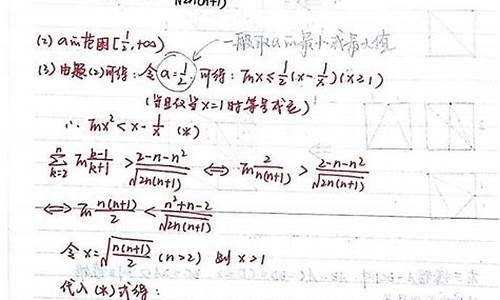 √2n(n+1)
(2) a的范围[1/2,+∞) 一般取a的最小或最大值
(3) 由题(2)可得:令a=1/2,可得:lnx≤1/2(x-1/x)(x≥1)
(当且仅当x=1时等号成立)
∴ lnx²<x-1/x (*)
∑_{k=2}^{n} ln (k-1)/(k+1) > (2-n-n²)/√2n(n+1) ⟺ ln 2/n(n+1) > (2-n-n²)/√2n(n+1)
⟺ ln n(n+1)/2 < (n²+n-2)/√2n(n+1)
令x=√(n(n+1)/2) (n≥2) 则x>1
代入(*)式得: